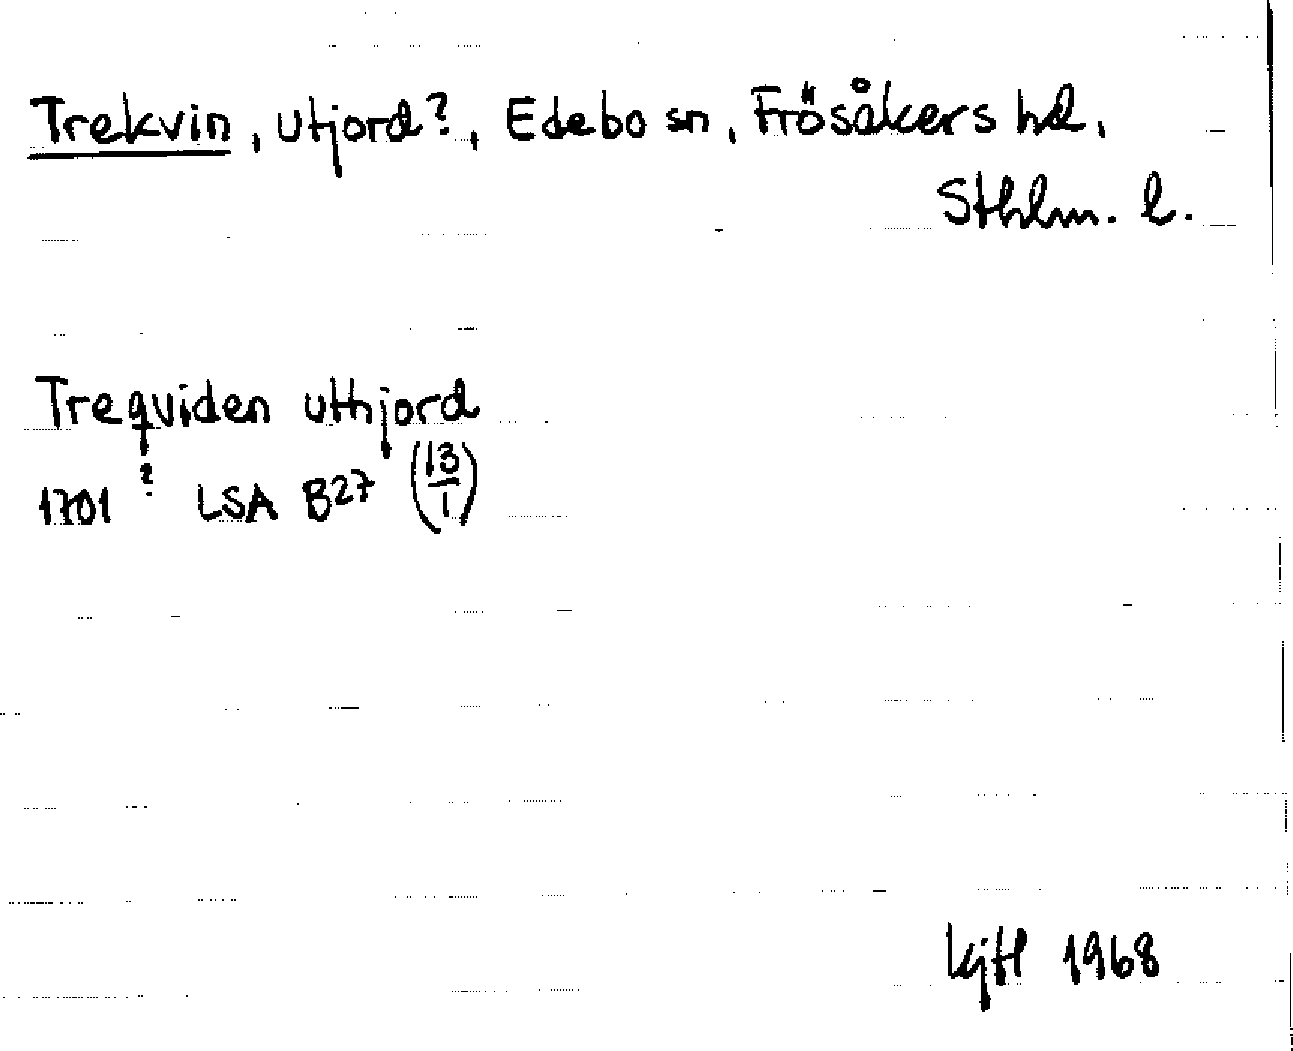 Trekvin, utjord?, Edebo sn, Frösåkers hd,
Sthlm. l.
Treqviden uthjord
?
1701 LSA B27 (13/1)
1968